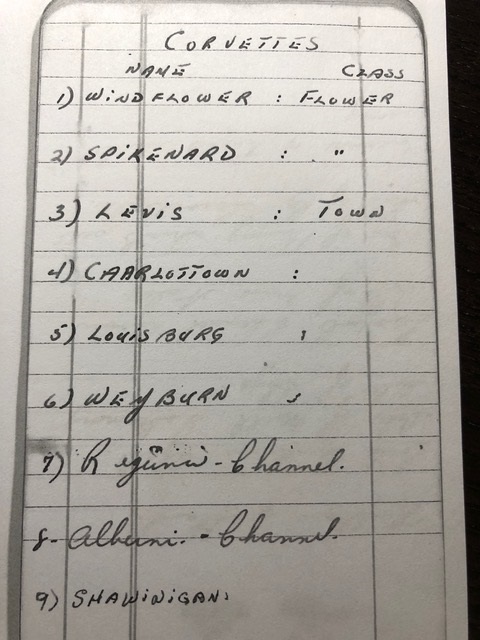 CORVETTES
NAME CLASS
1) WINDFLOWER : FLOWER
2) SPIKENARD : "
3) LEVIS : TOWN
4) CHARLOTTOWN :
5) LOUISBURG :
6) WEYBURN
7) Regina - Channel.
8- Alberni. - Channel.
9) SHAWINIGAN: